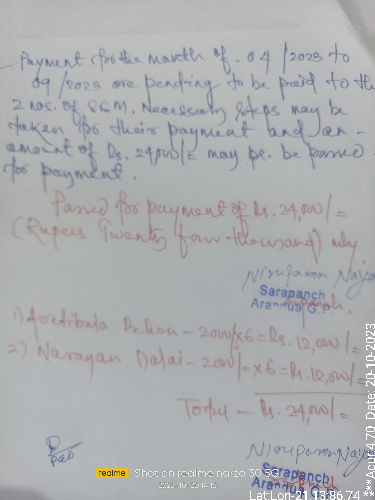 Payment for the month of - 04/2023 to
09/2023 are pending to be paid to the
2 nos. of SGM. Necessary steps may be
taken for their payment and an
amount of Rs. 24,000/= may pl. be passed
for payment.
Passed for payment of Rs. 24,000/=
(Rupees Twenty four thousand) only
Nirupama Nayak
Sarapanch
Arannua G.P.
1) - 2000/x6 = Rs. 12,000/=
2) Narayan Dalai - 2000/= x6 = Rs. 12,000/=
Total - Rs. 24,000/=
Nirupama Nayak
Sarapanch
Arannua G.P.
PEO
realme Shot on realme narzo 30 5G
2023.10.20 14:15
Lat:Lon-21.13:86.74
***Acu:4.70 Date: 20-10-2023